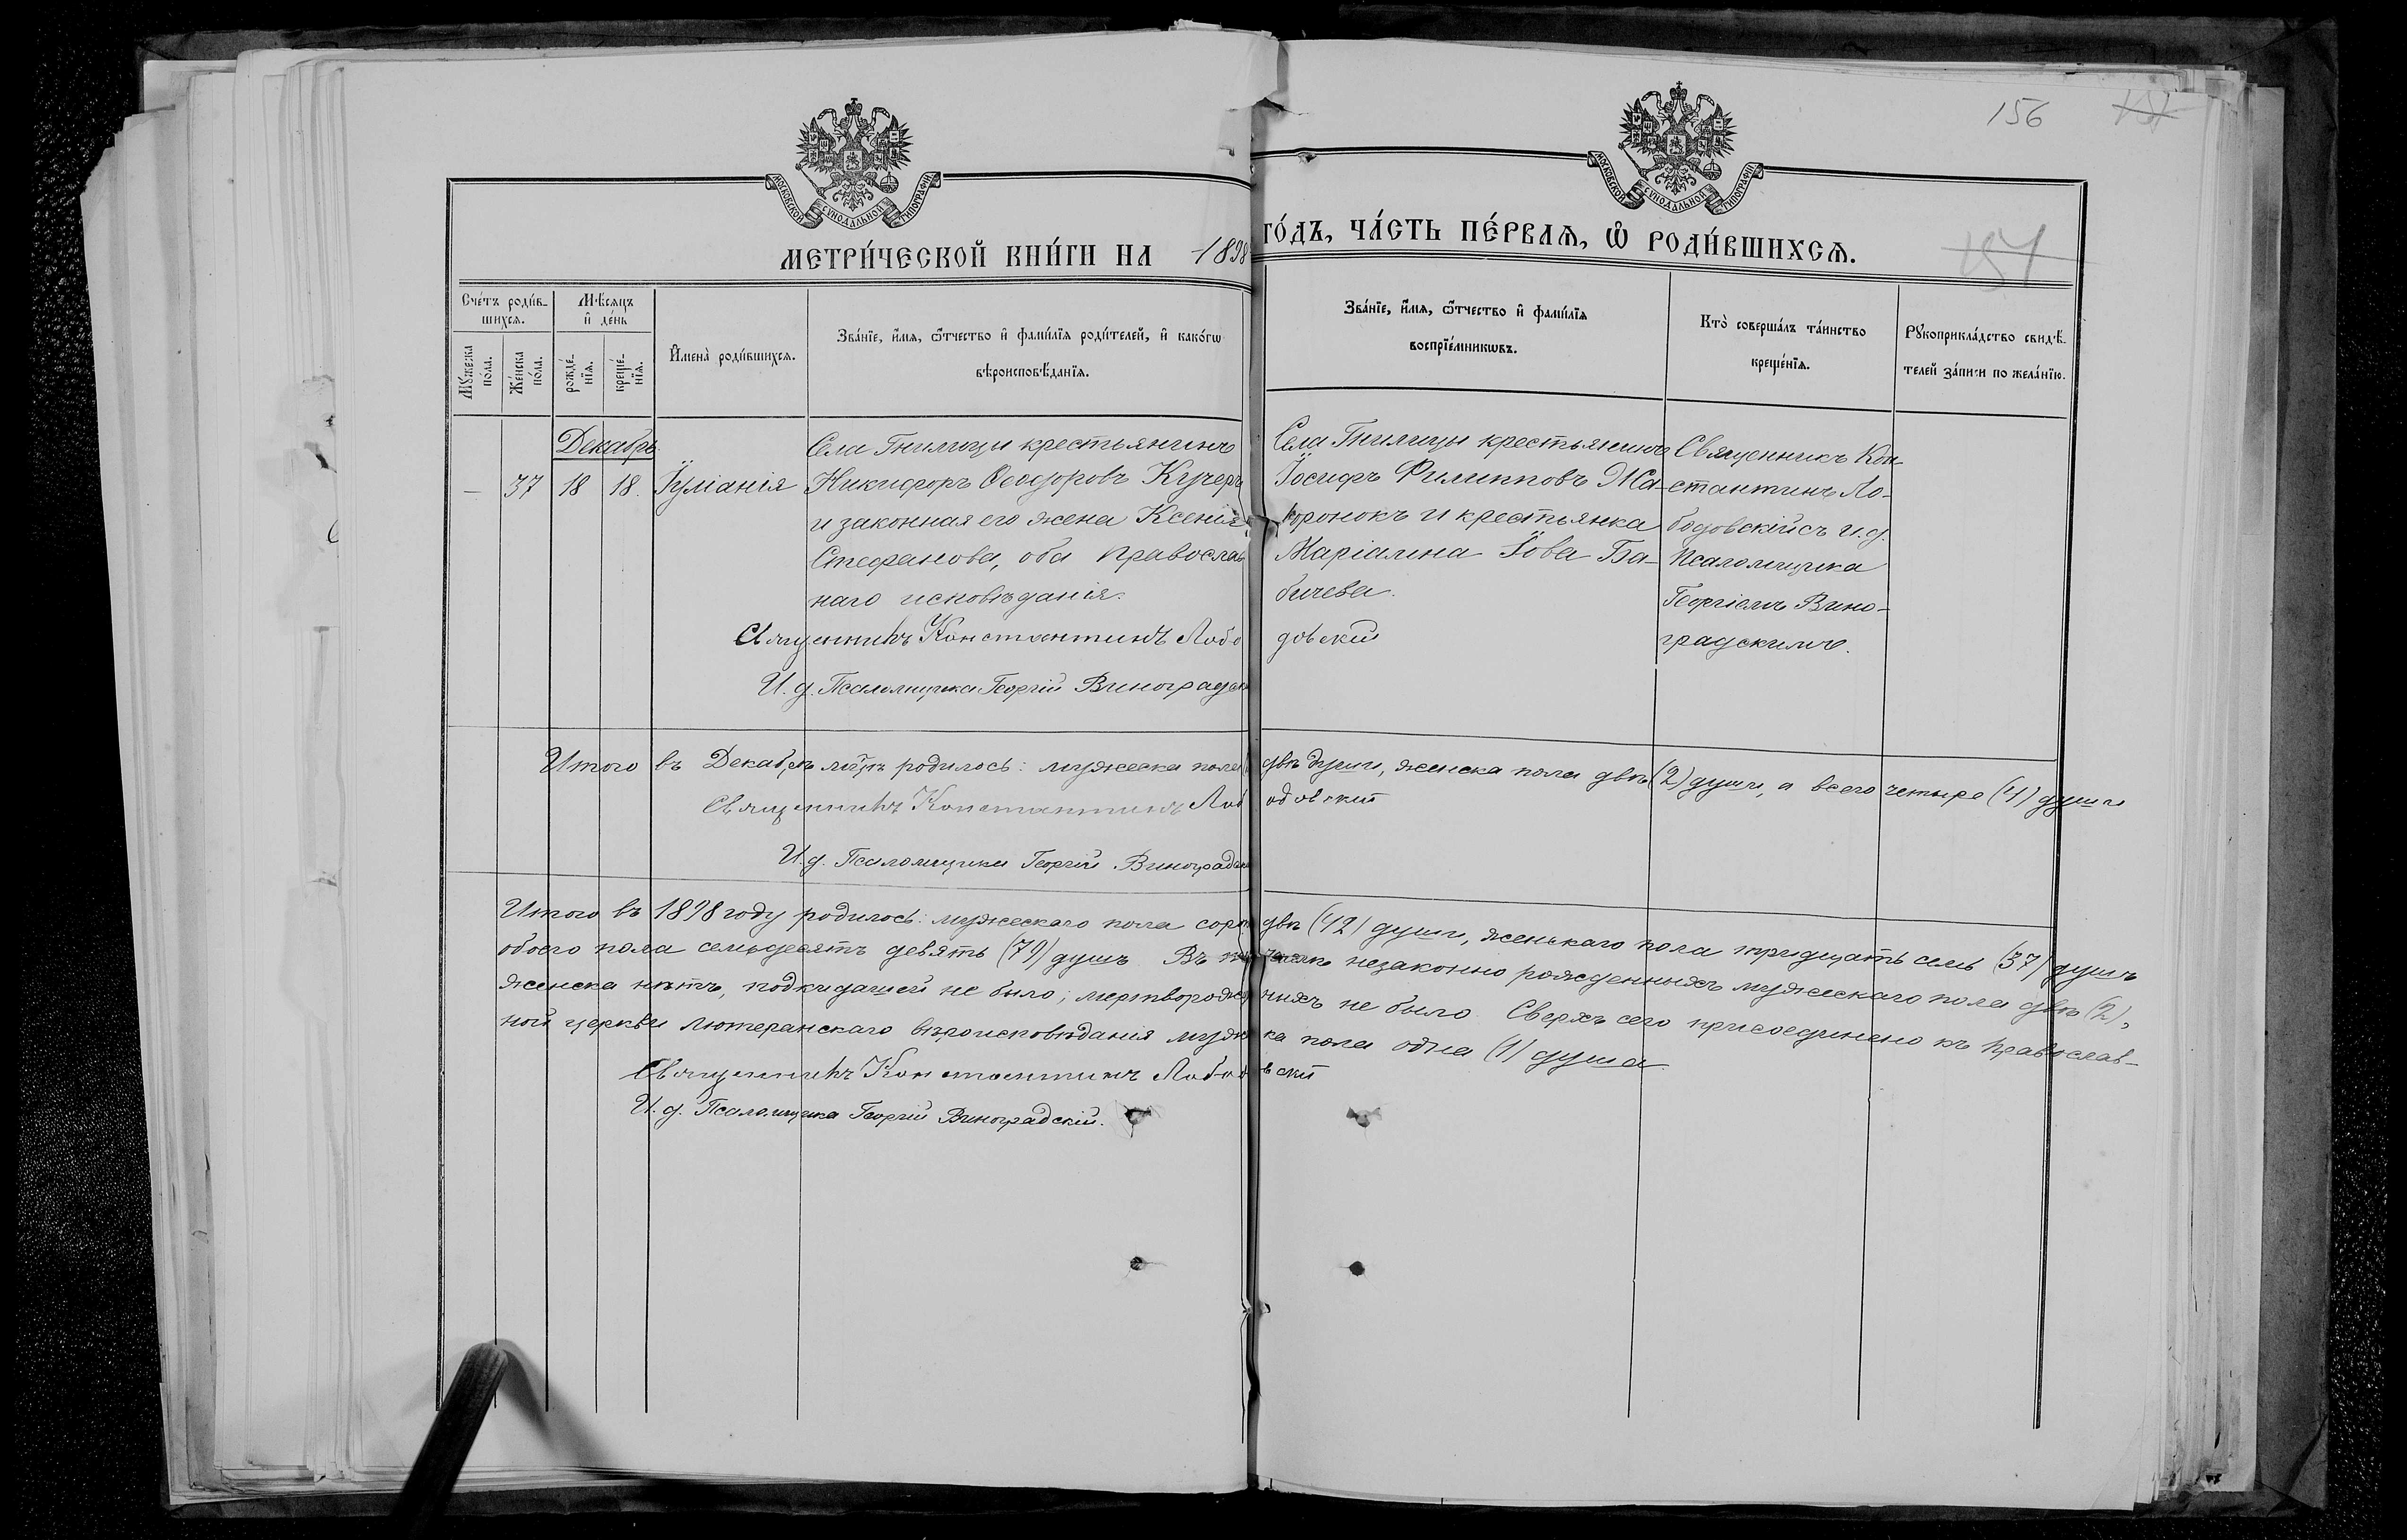 156
151
МОСКОВСКОЙ СУНОДАЛЬНОЙ ТИПОГРАФІИ
МОСКОВСКОЙ СУНОДАЛЬНОЙ ТИПОГРАФІИ
МЕТРИ́ЧЕСКОЙ КНИ́ГИ НА 1898 ГО́ДЪ, ЧА́СТЬ ПЕ́РВАѦ, Ѡ҆ РОДИ́ВШИХСѦ.
151
Сче́тъ роди́в-
шихсѧ.
Мѣ́сѧцъ
и҆ де́нь
Мꙋ́жежа
по́ла.
Же́нска
по́ла.
рожде́-
нїѧ.
креще́-
нїѧ.
И҆мена̀ роди́вшихсѧ.
Зва́нїе, и҆́мѧ, ѻ҆́тчество и҆ фами́лїѧ роди́телей, и҆ како́гѡ
вѣроисповѣ́данїѧ.
Зва́нїе, и҆́мѧ, ѻ҆́тчество и҆ фами́лїѧ
воспрїе́мникѡвъ.
Кто̀ соверша́лъ та́инство
креще́нїѧ.
Рꙋкоприкла́дство свидѣ́-
телей за́писи по жела́нїю.
Декабрь.
— 37 18 18. Іуліанія
Села Гнилицы крестьянинъ
Никифоръ Ѳеодоровъ Кучеръ
и законная его жена Ксенія
Стефанова, оба православ
наго исповѣданія.
Села Гнилицы крестьянинъ
Іосифъ Филипповъ Жа-
воронокъ и крестьянка
Маріамна Іова Ба-
бичева.
Священникъ Кон
стантинъ Ло-
бодовскій съ и.д.
Псаломщика
Георгіемъ Вино-
градскимъ.
Священникъ Константинъ Лободовскій
И. д. Псаломщика Георгій Виноградск
Итого въ Декабрѣ мцѣ родилось: мужеска пола двѣ души, женска пола двѣ (2) души, а всего четыре (4) души
Священникъ Константинъ Лободовскій
И. д. Псаломщика Георгій Виноградск
Итого въ 1898 году родилось: мужескаго пола сорок двѣ (42) души, женскаго пола тридцать семь (37) душъ
обоего пола семьдесятъ девять (79) душъ. Въ числѣ незаконно рожденныхъ мужескаго пола двѣ (2),
женска нѣтъ, подкидышей не было; мертворожденныхъ не было. Сверхъ сего присоединено къ православ-
ной церкви лютеранскаго вѣроисповѣданія мужска пола одна (1) душа
Священникъ Константинъ Лободовскій
И. д. Псаломщика Георгій Виноградскій.